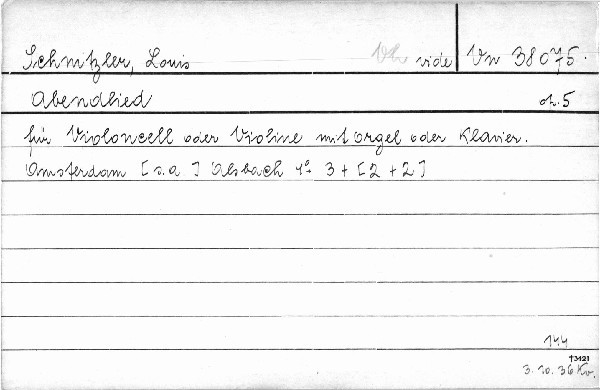 Schnitzler, Louis vide Vn 38075.
Abendlied op. 5
für Violoncell oder Violine mit Orgel oder Klavier.
Amsterdam [s.a.] Alsbach 4° 3 + [2 + 2]
144
+3121
3.10.36 Kv.